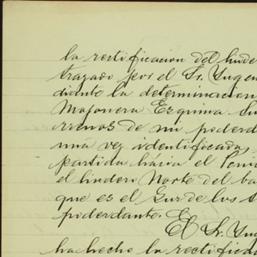 la rectificacion del linde
trazado por el Sr. Ynge
diante la determinacion
Mojonera Esquina
de mi poderd
una vez identificados
partida hacia el
el lindero Norte del
que es el Sur de los
poderdante.
El Sr. Yn
ha hecho la rectificac